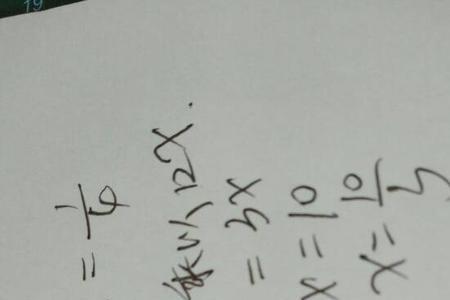 19
= 1/6
以, 12X.
= 3X
X = 10
X = 10/3